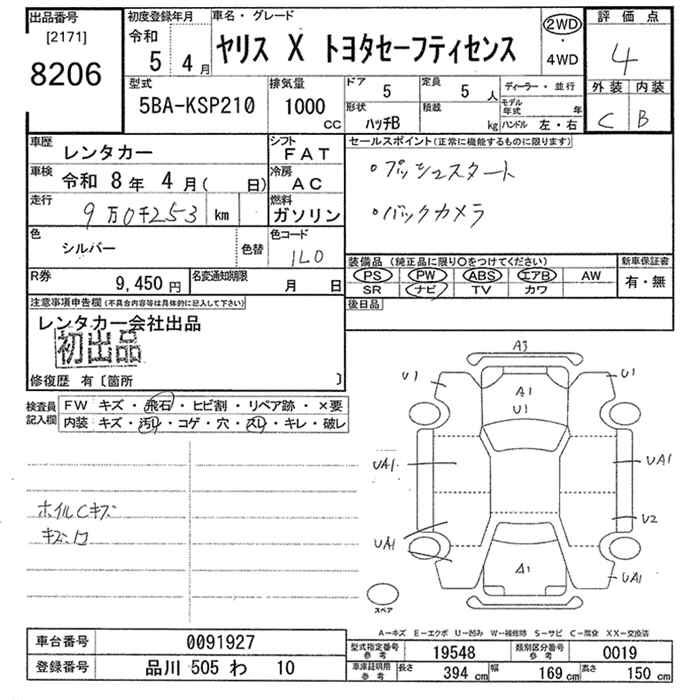 出品番号
[2171]
8206
初度登録年月
令和
5 4月
車名・グレード
ヤリス X トヨタセーフティセンス
2WD
・
4WD
評価点
4
外装 内装
C B
型式
5BA-KSP210
排気量
1000
cc
ドア
5
定員
5 人
形状
ハッチB
積載
kg
ディーラー・並行
モデル年式 年
ハンドル 左・右
車歴
レンタカー
シフト
FAT
車検
令和 8年 4月( 日)
冷房
AC
走行
9万0千253 km
燃料
ガソリン
色
シルバー
色替
色コード
1L0
R券
9,450円
名変通知期限
月 日
セールスポイント(正常に機能するものに限ります)
・プッシュスタート
・バックカメラ
装備品 (純正品に限り○をつけてください)
PS PW ABS エアB AW
SR ナビ TV カワ
新車保証書
有・無
後日品
注意事項申告欄(不具合内容等は具体的に記入して下さい)
レンタカー会社出品
初出品
修復歴 有〔箇所 〕
検査員
記入欄
FW キズ・飛石・ヒビ割・リペア跡・×要
内装 キズ・汚レ・コゲ・穴・スレ・キレ・破レ
A3
U1
U1
A1
U1
UA1
UA1
U2
UA1
A1
UA1
ホイルCキズ
スペア
A－キズ E－エクボ U－凹み W－補修跡 S－サビ C－腐食 XX－交換済
車台番号
0091927
登録番号
品川 505 わ 10
型式指定番号
参考
19548
類別区分番号
参考
0019
車庫証明用
参考
長さ
394 cm
幅
169 cm
高さ
150 cm